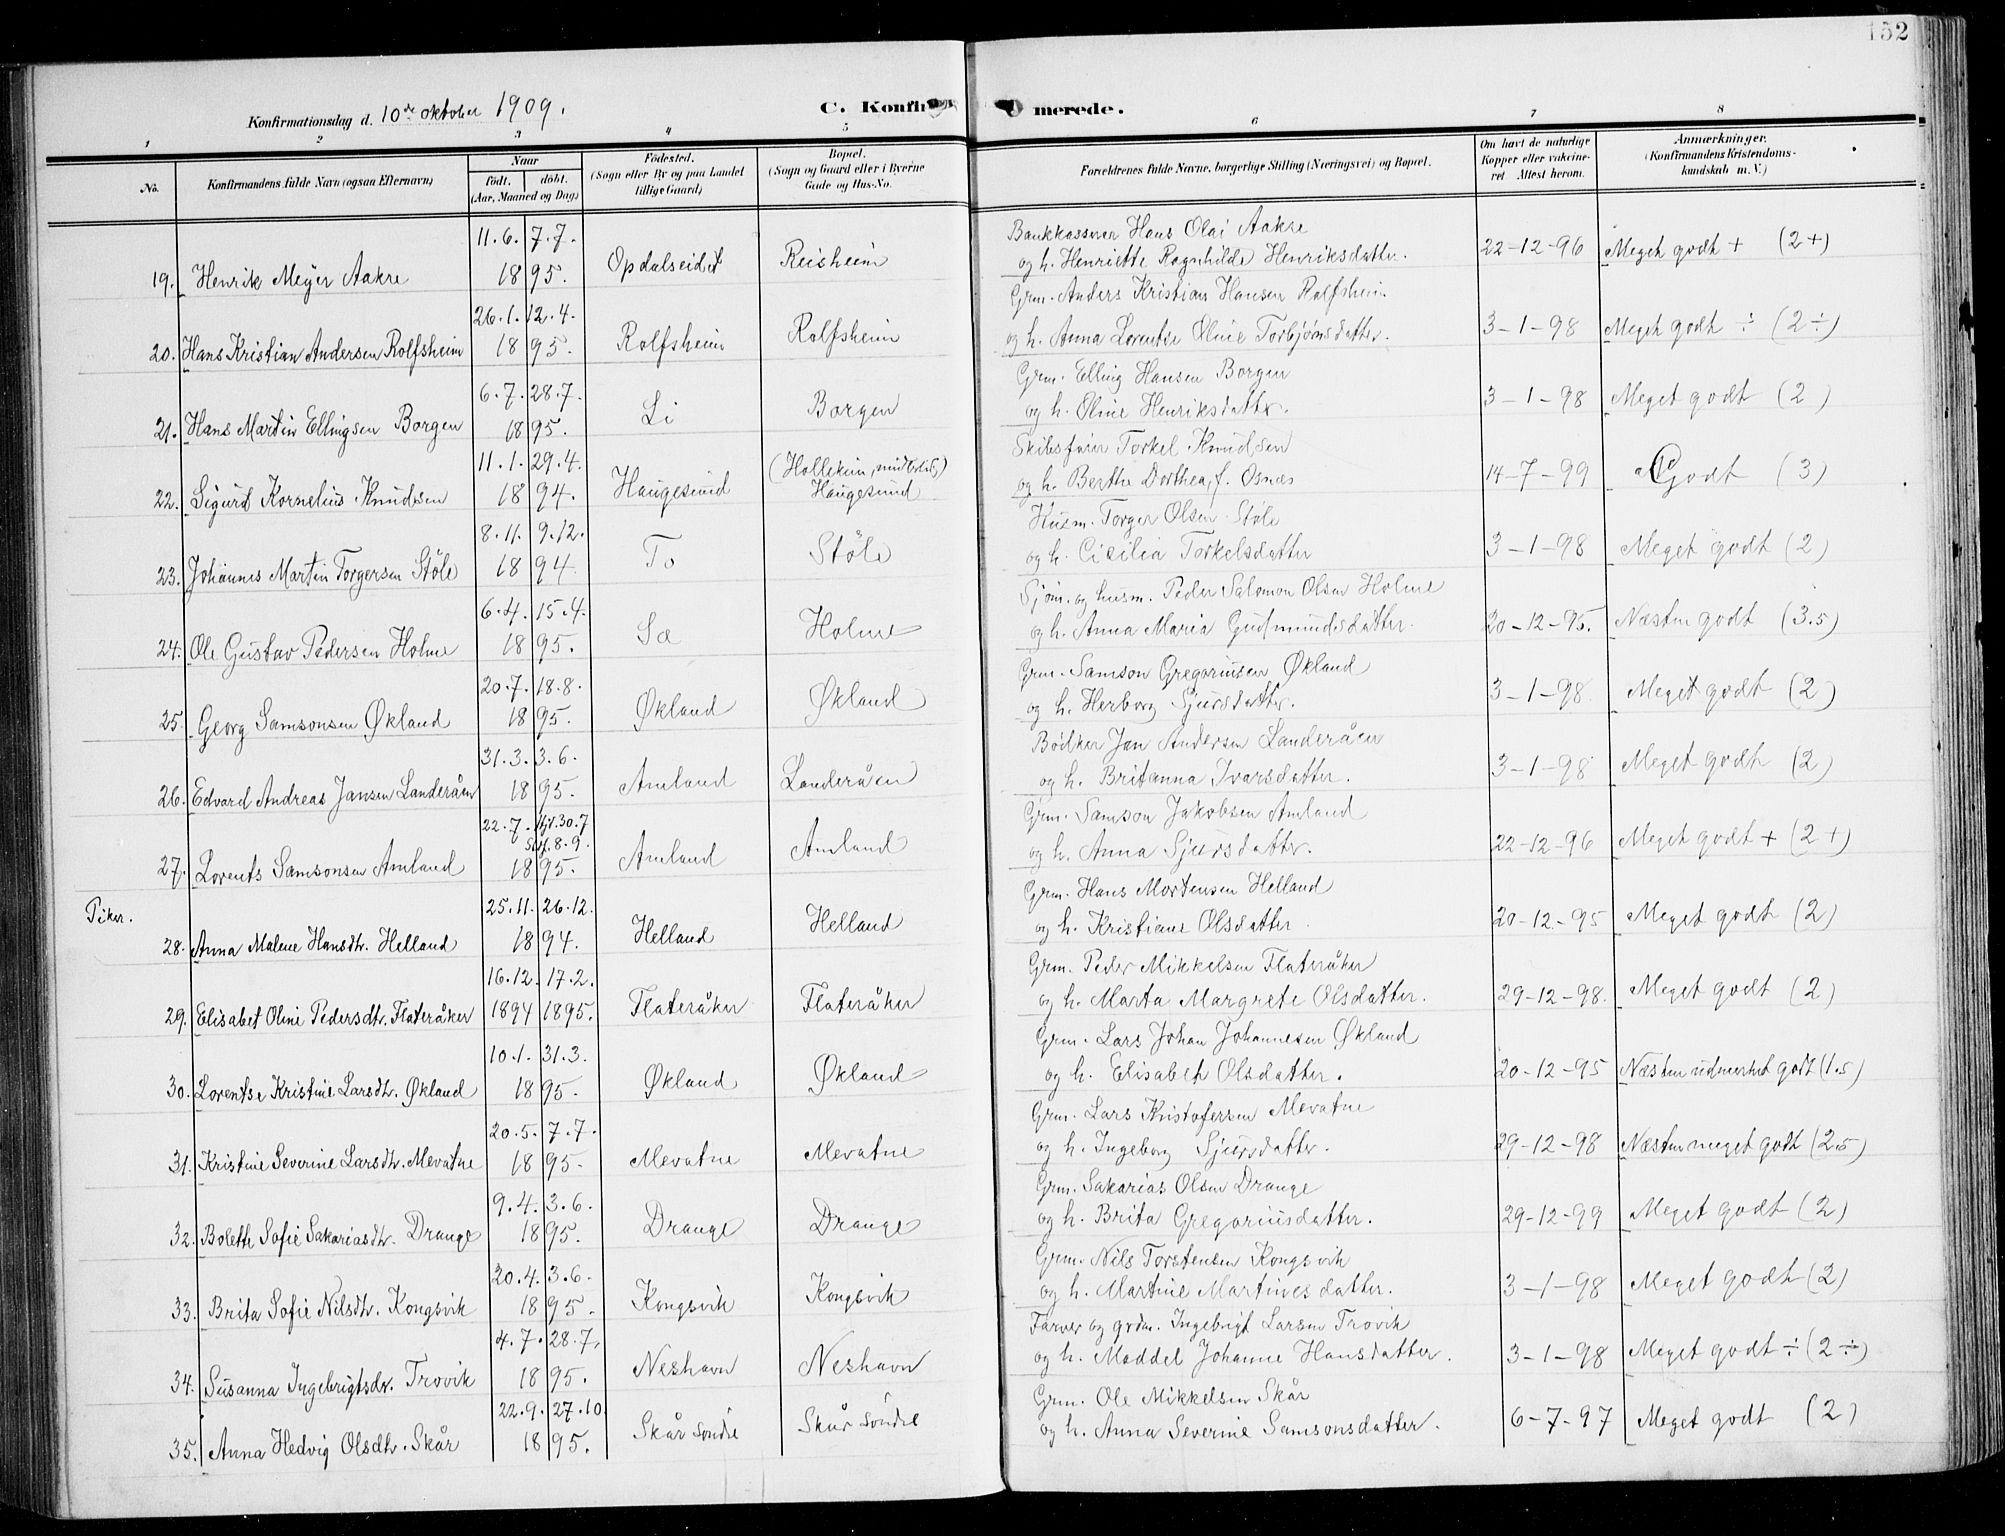 152
Konfirmationsdag d. 10de oktober 1909.
C. Konfir merede.
1 2 3 4 5 6 7 8
No.
Konfirmandens fulde Navn (ogsaa Efternavn)
Naar
født. døbt.
(Aar, Maaned og Dag)
Fødested.
(Sogn eller By og paa Landet
tillige Gaard)
Bopæl.
(Sogn og Gaard eller i Byerne
Gade og Hus-No.
Forældrenes fulde Navne, borgerlige Stilling (Næringsvei) og Bopæl.
Om havt de naturlige
Kopper eller vakcine-
ret Attest herom.
Anmærkninger.
(Konfirmandens Kristendoms-
kundskab m. V.)
11.6. 7.7. Bankkasserer Hans Olai Aakre
19. Henrik Meyer Aakre 1895. Opdalseidet Reisheim og h. Henriette Ragnhilde Henriksdatter. 22-12-96 Meget godt + (2+)
26.1. 12.4. Grm. Anders Kristian Hansen Rolfsheim
20. Hans Kristian Andersen Rolfsheim 1895. Rolfsheim Rolfsheim og h. Anna Lorentse Oline Torbjørnsdatter. 3-1-98 Meget godt ÷ (2÷)
6.7. 28.7. Grm. Elling Hansen Borgen
21. Hans Martin Ellingsen Borgen 1895. Li Borgen og h. Oline Henriksdatter. 3-1-98 Meget godt (2)
11.1. 29.4. Skibsfører Torkel Knudsen
22. Sigurd Kornelius Knudsen 1894. Haugesund Haugesund og h. Berthe Dorthea, f. Osnes 14-7-99 Godt (3)
8.11. 9.12. Husm. Torger Olsen Støle
23. Johannes Martin Torgersen Støle 1894. To Støle og h. Cicilia Torkelsdatter 3-1-98 Meget godt (2)
6.4. 15.4. Sjøm. og husm. Peder Salomon Olsen Holme
24. Ole Gustav Pedersen Holme 1895. Sæ Holme og h. Anna Maria Gudmundsdatter. 20-12-95. Næsten godt (3.5)
20.7. 18.8. Grm. Samson Gregoriussen Økland
25. Georg Samsonsen Økland 1895. Økland Økland og h. Herborg Sjursdatter. 3-1-98 Meget godt (2)
31.3. 3.6. Bødker Jan Andersen Landeråen
26. Edvard Andreas Jansen Landeråen 1895. Amland Landeråen og h. Britanna Ivarsdatter. 3-1-98 Meget godt (2)
22.7. Hjd. 30.7 Grm. Samson Jakobsen Amland
8.9.
27. Lorents Samsonsen Amland 1895. Amland Amland og h. Anna Sjursdatter. 22-12-96 Meget godt + (2+)
Piker.
25.11. 26.12. Grm. Hans Mortensen Helland
28. Anna Malene Hansdtr. Helland 1894. Helland Helland og h. Kristiane Olsdatter. 20-12-95 Meget godt (2)
16.12. 17.2. Grm. Peder Mikkelsen Flateråker
29. Elisabet Oline Pedersdtr. Flateråker 1894 1895. Flateråker Flateråker og h. Marta Margrete Olsdatter. 29-12-98. Meget godt (2)
10.1. 31.3. Grm. Lars Johan Johannesen Økland
30. Lorentse Kristine Larsdtr. Økland 1895. Økland Økland og h. Elisabet Olsdatter. 20-12-95 Næsten udmerket godt (1.5)
20.5. 7.7. Grm. Lars Kristofersen Mevatne
31. Kristine Severine Larsdtr. Mevatne 1895. Mevatne Mevatne og h. Ingeborg Sjursdatter. 29-12-98 Næsten meget godt (2.5)
9.4. 3.6. Grm. Sakarias Olsen Drange
32. Bolette Sofie Sakariasdtr. Drange 1895. Drange Drange og h. Brita Gregoriusdatter. 29-12-99 Meget godt (2)
20.4. 3.6. Grm. Nils Torstensen Kongsvik
33. Brita Sofie Nilsdtr. Kongsvik 1895. Kongsvik Kongsvik og h. Martine Martinesdatter. 3-1-98 Meget godt (2)
4.7. 28.7. Farver og grdm. Ingebrigt Larsen Trovik
34. Susanna Ingebrigtsdtr. Trovik 1895. Neshavn Neshavn og h. Maddel Johanne Hansdatter. 3-1-98 Meget godt ÷ (2÷)
22.9. 27.10. Grm. Ole Mikkelsen Skår
35. Anna Hedvig Olsdtr. Skår 1895. Skår søndre Skår søndre og h. Anna Severine Samsonsdatter. 6-7-97 Meget godt (2)